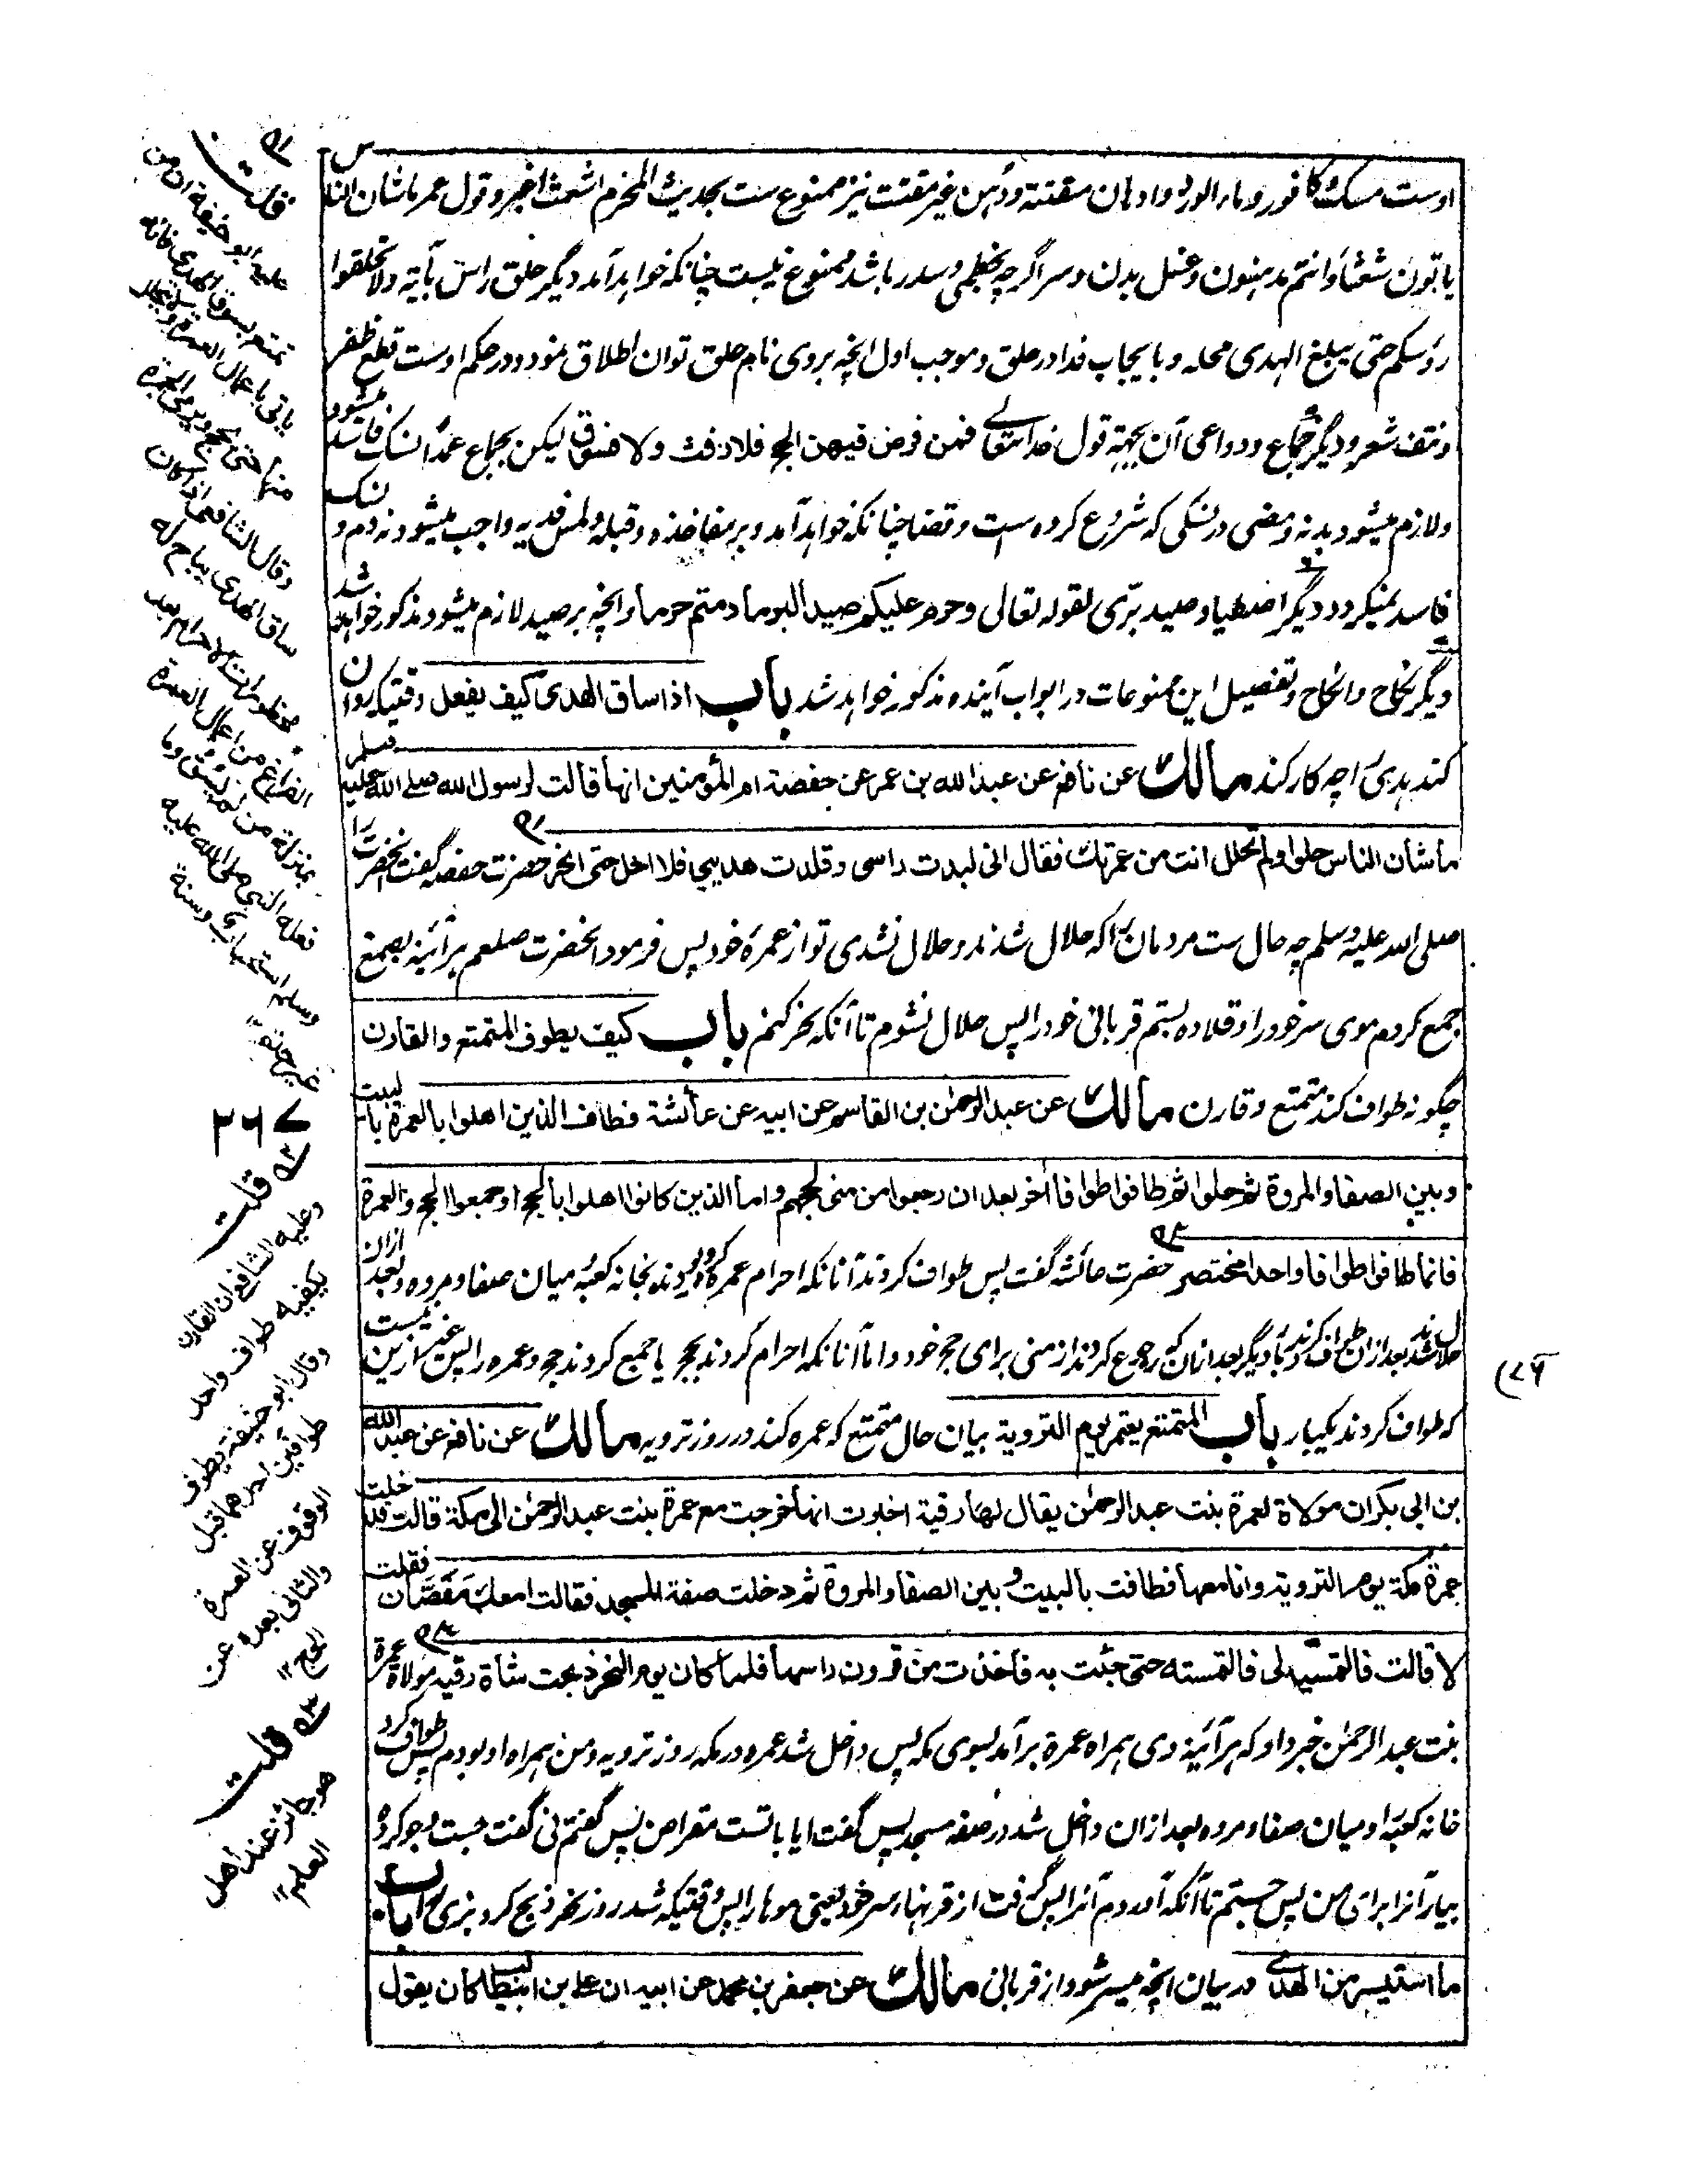 اوست مسک کافور و ماء الورد و ادهان مقتتة و دهن غیر مقتت نیز ممنوع ست بحدیث المحرم اشعث اغبر و قول عمر ما شان الناس
یاتون شعثا و انتم مدهنون و غسل بدن و سر اگرچه بخطمی و سدر باشد ممنوع نیست چنانکه خواهد آمد دیگر حلق راس بآیة ولا تحلقوا
رؤسکم حتی یبلغ الهدی محله و بایجاب فدا در حلق و موجب اول انچه بروی نام حلق توان اطلاق نمود و در حکم اوست قطع ظفر
و نتف شعر و دیگر جماع و دواعی آن بجهة قول خدا تعالے فمن فرض فیهن الحج فلا رفث ولا فسوق لیکن بجماع عمدا نسک فاسد میشود
ولازم میشود بدنه و مضی در نسکی که شروع کرده است و قضا چنانکه خواهد آمد و بر مفاخذه و قبله و لمس فدیه واجب میشود نه دم و نسک
فاسد نمیگردد دیگر اصطیاد صید بری لقوله تعالی وحرم علیکم صید البر ما دمتم حرما و انچه بر صید لازم میشود مذکور خواهد شد
دیگر نکاح و انکاح و تفصیل این ممنوعات در ابواب آینده مذکور خواهد شد باب اذا ساق الهدی کیف یفعل وقتیکه روان
کند هدی را چه کار کند مالک عن نافع عن عبد الله بن عمر عن حفصة ام المؤمنین انها قالت لرسول الله صلے الله علیه وسلم
ما شان الناس حلوا ولم تحلل انت من عمرتک فقال انی لبدت راسی وقلدت هدیی فلا احل حتی انحر حضرت حفصه گفت آنحضرت را
صلی الله علیه وسلم چه حال ست مردمان را که حلال شدند و حلال نشدی تو از عمره خود پس فرمود آنحضرت صلعم هرآئینه بصمغ
جمع کردم موی سر خود را و قلاده بستم قربانی خود را پس حلال نشوم تا آنکه نحر کنم باب کیف یطوف المتمتع والقارن
چگونه طواف کند متمتع و قارن مالک عن عبد الرحمن بن القاسم عن ابیه عن عائشة فطاف الذین اهلوا بالعمرة بالبیت
وبین الصفا والمروة ثم حلوا ثم طافوا طوافا آخر بعد ان رجعوا من منی لحجهم واما الذین کانوا اهلوا بالحج او جمعوا الحج والعمرة
فانما طافوا طوافا واحدا مختصر حضرت عائشه گفت پس طواف کردند آنانکه احرام عمره کرده بودند بخانه کعبه و میان صفا و مروه و بعد ازان
حلال شدند بعد ازان طواف کردند بار دیگر بعد ازان که رجوع کردند از منی برای حج خود و اما آنانکه احرام کردند بحج یا جمع کردند حج و عمره را پس غیر ازین نیست
که طواف کردند یکبار باب المتمتع یعتمر یوم الترویة بیان حال متمتع که عمره کند در روز ترویه مالک عن نافع عن عبد الله
بن ابی بکر ان مولاة لعمرة بنت عبد الرحمن یقال لها رقیة اخبرت انها خرجت مع عمرة بنت عبد الرحمن الی مکة قالت فدخلت
عمرة مکة یوم الترویة وانا معها فطافت بالبیت وبین الصفا والمروة ثم دخلت صفة المسجد فقالت امعک مقصان فقلت
لا قالت فالتمسیه لی فالتمسته حتی جئت به فاخذت من قرون راسها فلما کان یوم النحر ذبحت شاة رقیه مولاة عمرة
بنت عبد الرحمن خبر داد که هرآئینه وی همراه عمرة برآمد بسوی مکه پس داخل شد عمره در مکه روز ترویه و من همراه او بودم پس طواف کرد
خانه کعبه را و میان صفا و مروه بعد ازان داخل شد در صفه مسجد پس گفت ایا با تست مقراض پس گفتم نی گفت جست و جو کرده
بیار آنرا برای من پس جستم تا آنکه آوردم آنرا پس گرفت از قرنهای سر خود یعنی موها را پس وقتیکه شد روز نحر ذبح کرد بزی را باب
ما استیسر من الهدی در بیان انچه میسر شود از قربانی مالک عن جعفر بن محمد عن ابیه ان علی بن ابیطالب کان یقول
قلت
علیه ابو حنیفة ان من
تمتع بسوق الهدی فانه
یاتی باعمال العمرة
منها حتی یحج ویرمی الجمرة
وقال الشافعی اذا کان
ساق الهدی یباح له
محظورات الاحرام بعد
الفراغ من اعمال العمرة
بمنزلة من لم یسق وما
فعله النبی صلی الله علیه
وسلم استحباب وسنة
غیر حتم ۱۲
۲۶۷
قلت
وعلیه الشافعی ان القارن
یکفیه طواف واحد
وقال ابو حنیفة یطوف
طوافین احدهما قبل
الوقوف عن العمرة
والثانی بعده عن
الحج ۱۲
قلت
هو جائز عند اهل
العلم ۱۲